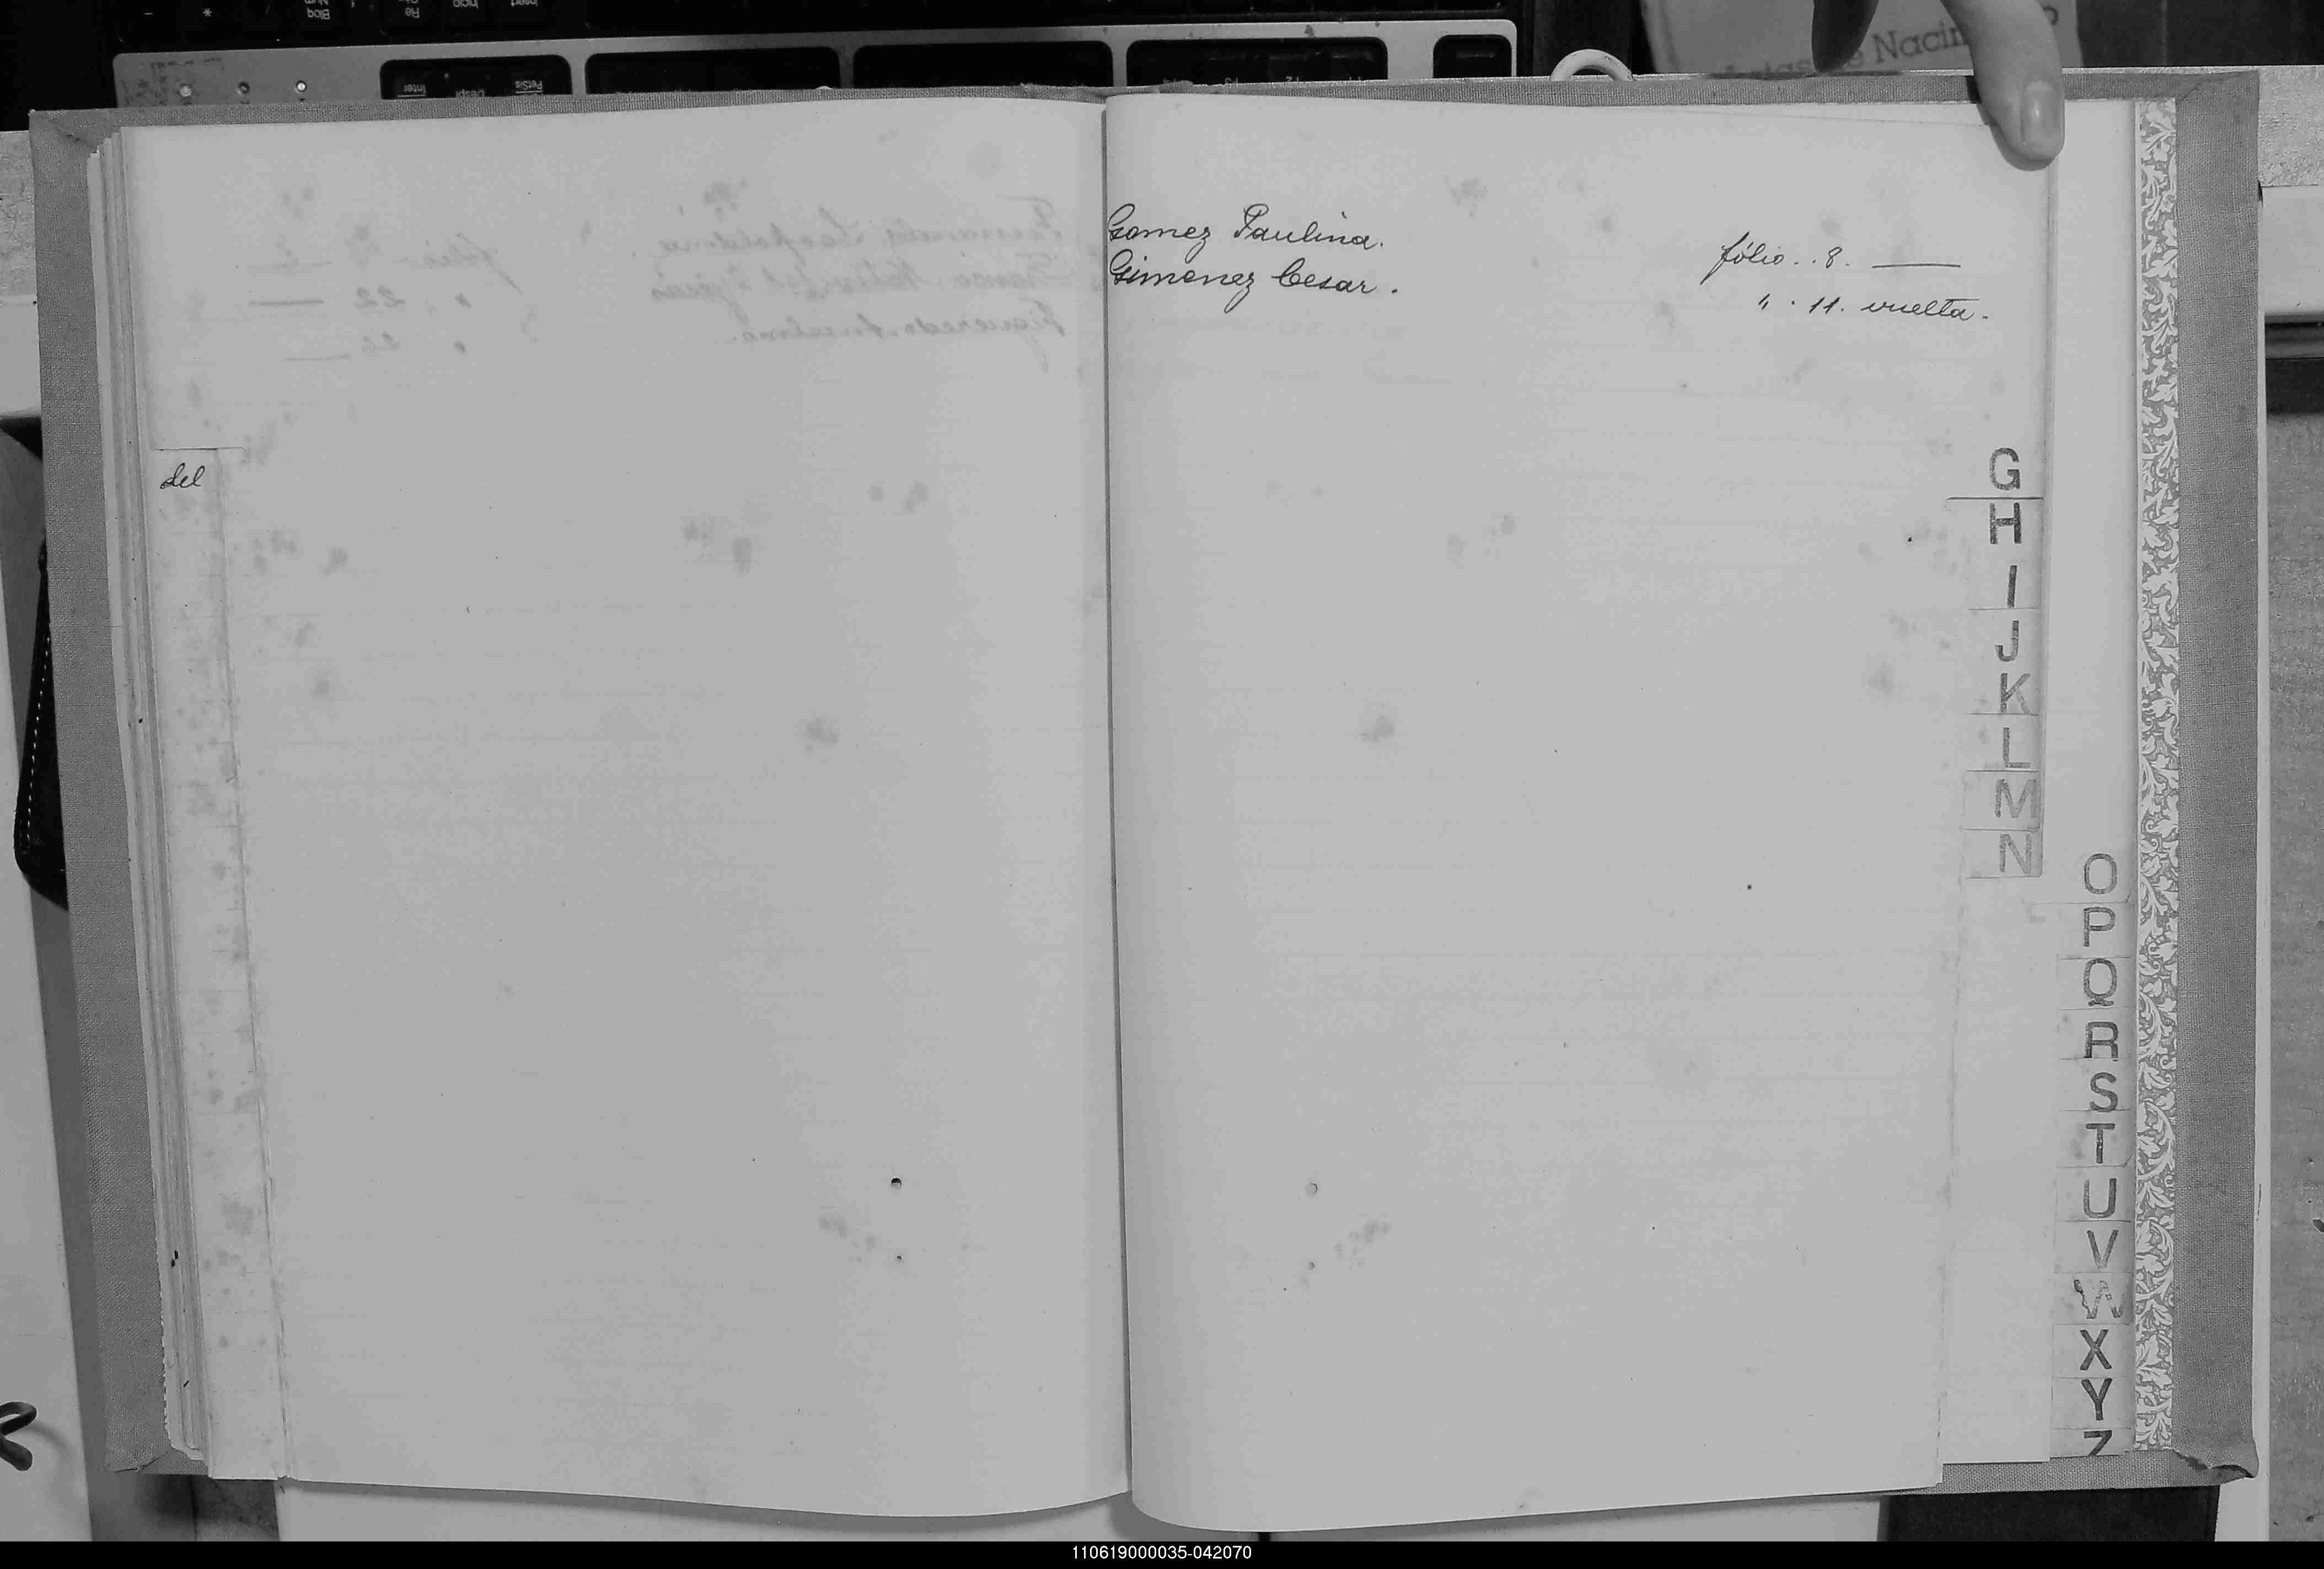 del
Gomez Paulina.
fólio. . 8. ——
Gimenez Cesar.
" . 11. vuelta.
G
H
I
J
K
L
M
N
O
P
Q
R
S
T
U
V
W
X
Y
Z
110619000035-042070